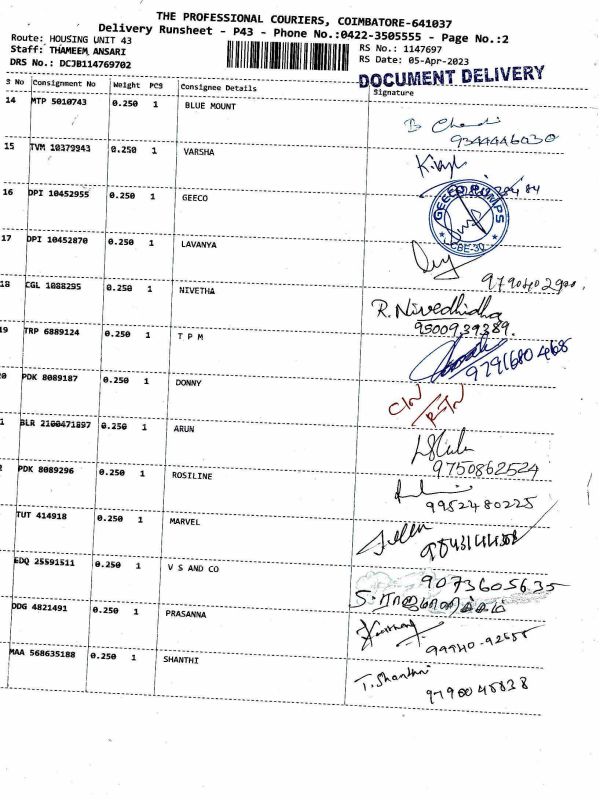 THE PROFESSIONAL COURIERS, COIMBATORE-641037
Delivery Runsheet - P43 - Phone No.:0422-3505555 - Page No.:2
Route: HOUSING UNIT 43
RS No.: 1147697
Staff: THAMEEM ANSARI
RS Date: 05-Apr-2023
DRS No.: DCJB114769702
DOCUMENT DELIVERY
S No Consignment No Weight PCS Consignee Details Signature
14 MTP 5010743 0.250 1 BLUE MOUNT
B
9344446030
15 TVM 10379943 0.250 1 VARSHA
16 DPI 10452955 0.250 1 GEECO
GEECO PUMPS
CBE-30
17 DPI 10452870 0.250 1 LAVANYA
18 CGL 1088295 0.250 1 NIVETHA
R. Nivedhidha
9500939389.
19 TRP 6889124 0.250 1 T P M
9791680468
0 PDK 8089187 0.250 1 DONNY
1 BLR 2100471897 0.250 1 ARUN
9750862524
2 PDK 8089296 0.250 1 ROSILINE
9952480225
TUT 414918 0.250 1 MARVEL
EDQ 25591511 0.250 1 V S AND CO
9073605635
DDG 4821491 0.250 1 PRASANNA
MAA 568635188 0.250 1 SHANTHI
T. Shanthi